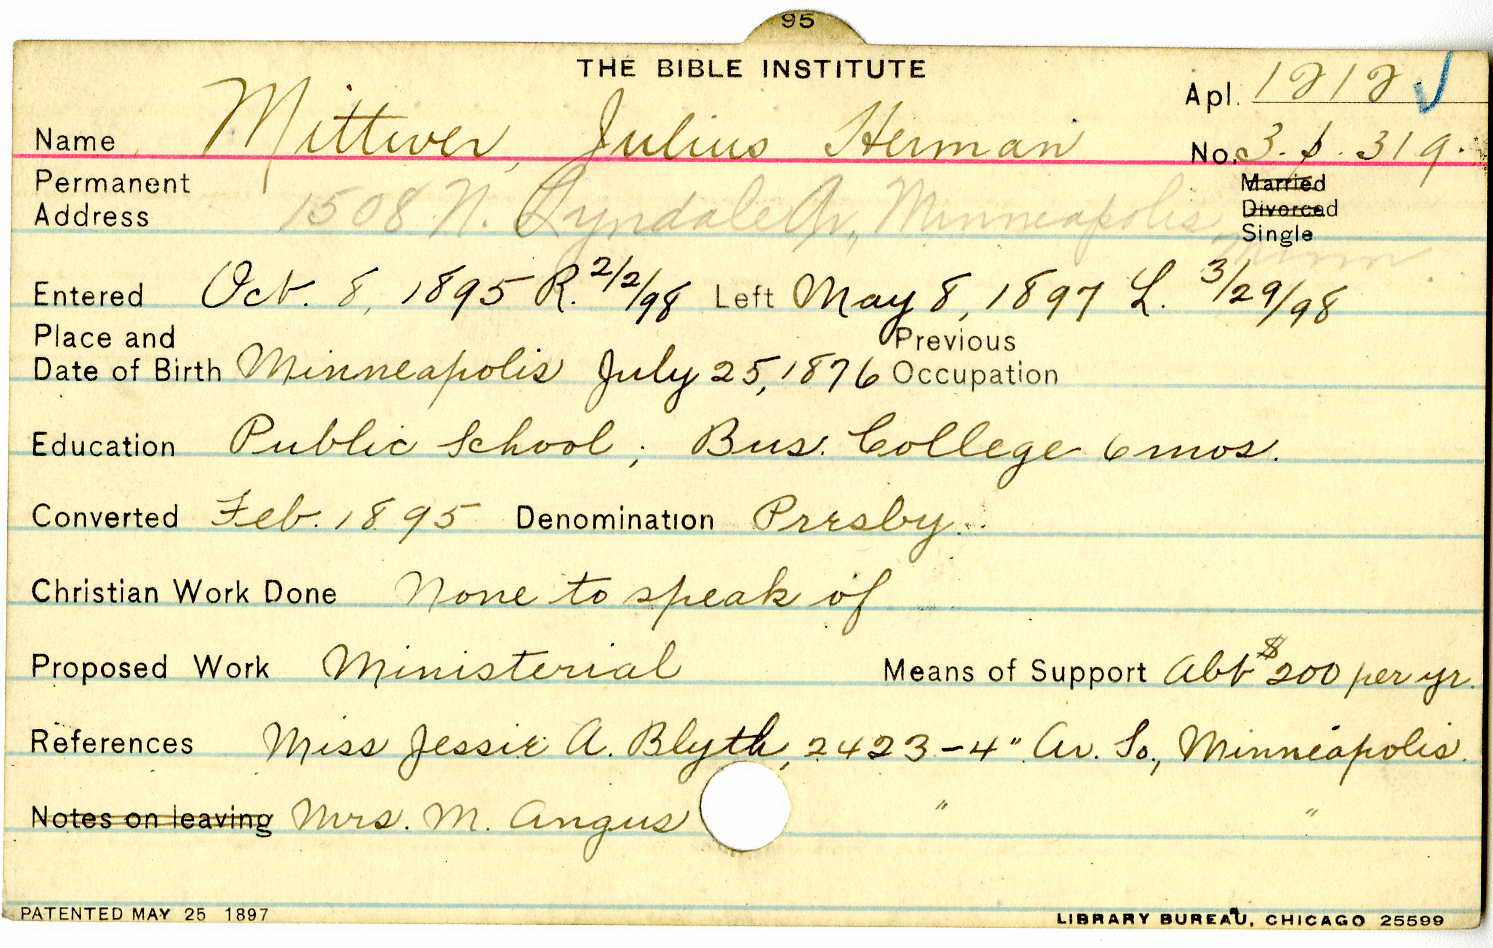 95
THE BIBLE INSTITUTE
Apl. 1212
Name Mittwer, Julius Herman No. 3. 1. 319.
Permanent Address 1508 N. Lyndale Av., Minneapolis, Minn.
Married
Divorced
Single
Entered Oct. 8, 1895 R. 2/2/98 Left May 8, 1897 L. 3/29/98
Place and Date of Birth Minneapolis July 25, 1876 Previous Occupation
Education Public School; Bus. College 6 mos.
Converted Feb. 1895 Denomination Presby.
Christian Work Done None to speak of
Proposed Work Ministerial Means of Support Abt $200 per yr.
References Miss Jessie A. Blyth, 2423-4" Av. So., Minneapolis.
Notes on leaving Mrs. M. Angus " "
PATENTED MAY 25 1897
LIBRARY BUREAU, CHICAGO 25599